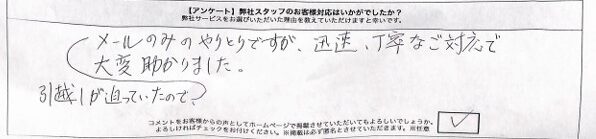 【アンケート】弊社スタッフのお客様対応はいかがでしたか？
弊社サービスをお選びいただいた理由を教えていただけますと幸いです。
メールのみのやりとりですが、迅速、丁寧なご対応で
大変助かりました。
引越しが迫っていたので
コメントをお客様からの声としてホームページで掲載させていただいてもよろしいでしょうか。
よろしければチェックをお付けください。※掲載は必ず匿名とさせていただきます。※任意